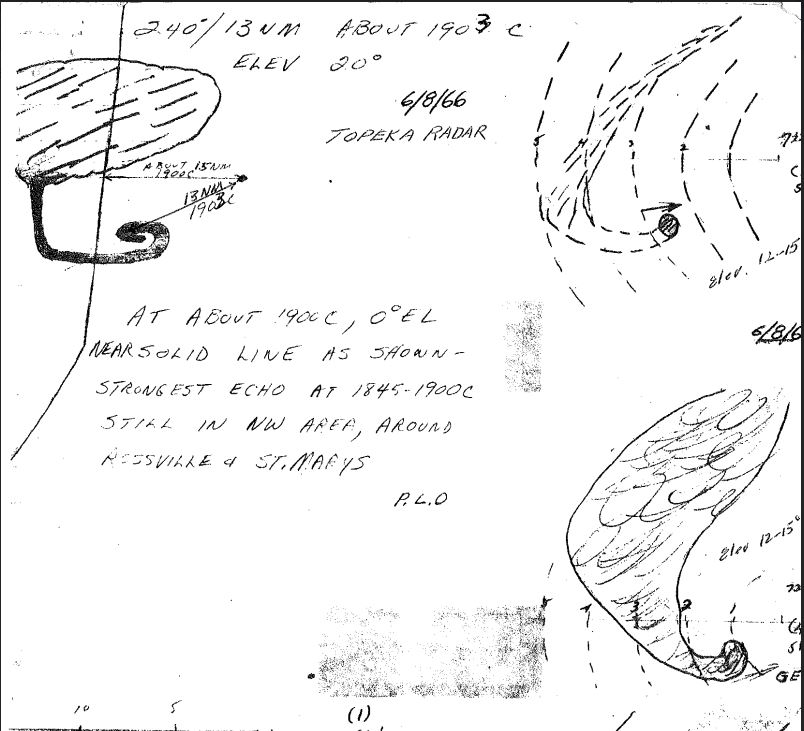 240°/13 NM ABOUT 1903 C
ELEV 20°
6/8/66
TOPEKA RADAR
ABOUT 15NM
1900C
13 NM
1903C
AT ABOUT 1900C, 0° EL
NEAR SOLID LINE AS SHOWN-
STRONGEST ECHO AT 1845-1900C
STILL IN NW AREA, AROUND
ROSSVILLE & ST. MARYS
P.L.O
10 5
(1)
5 4 3 2
Elev. 12-15
6/8/6
Elev 12-15°
4 3 2 1
GE